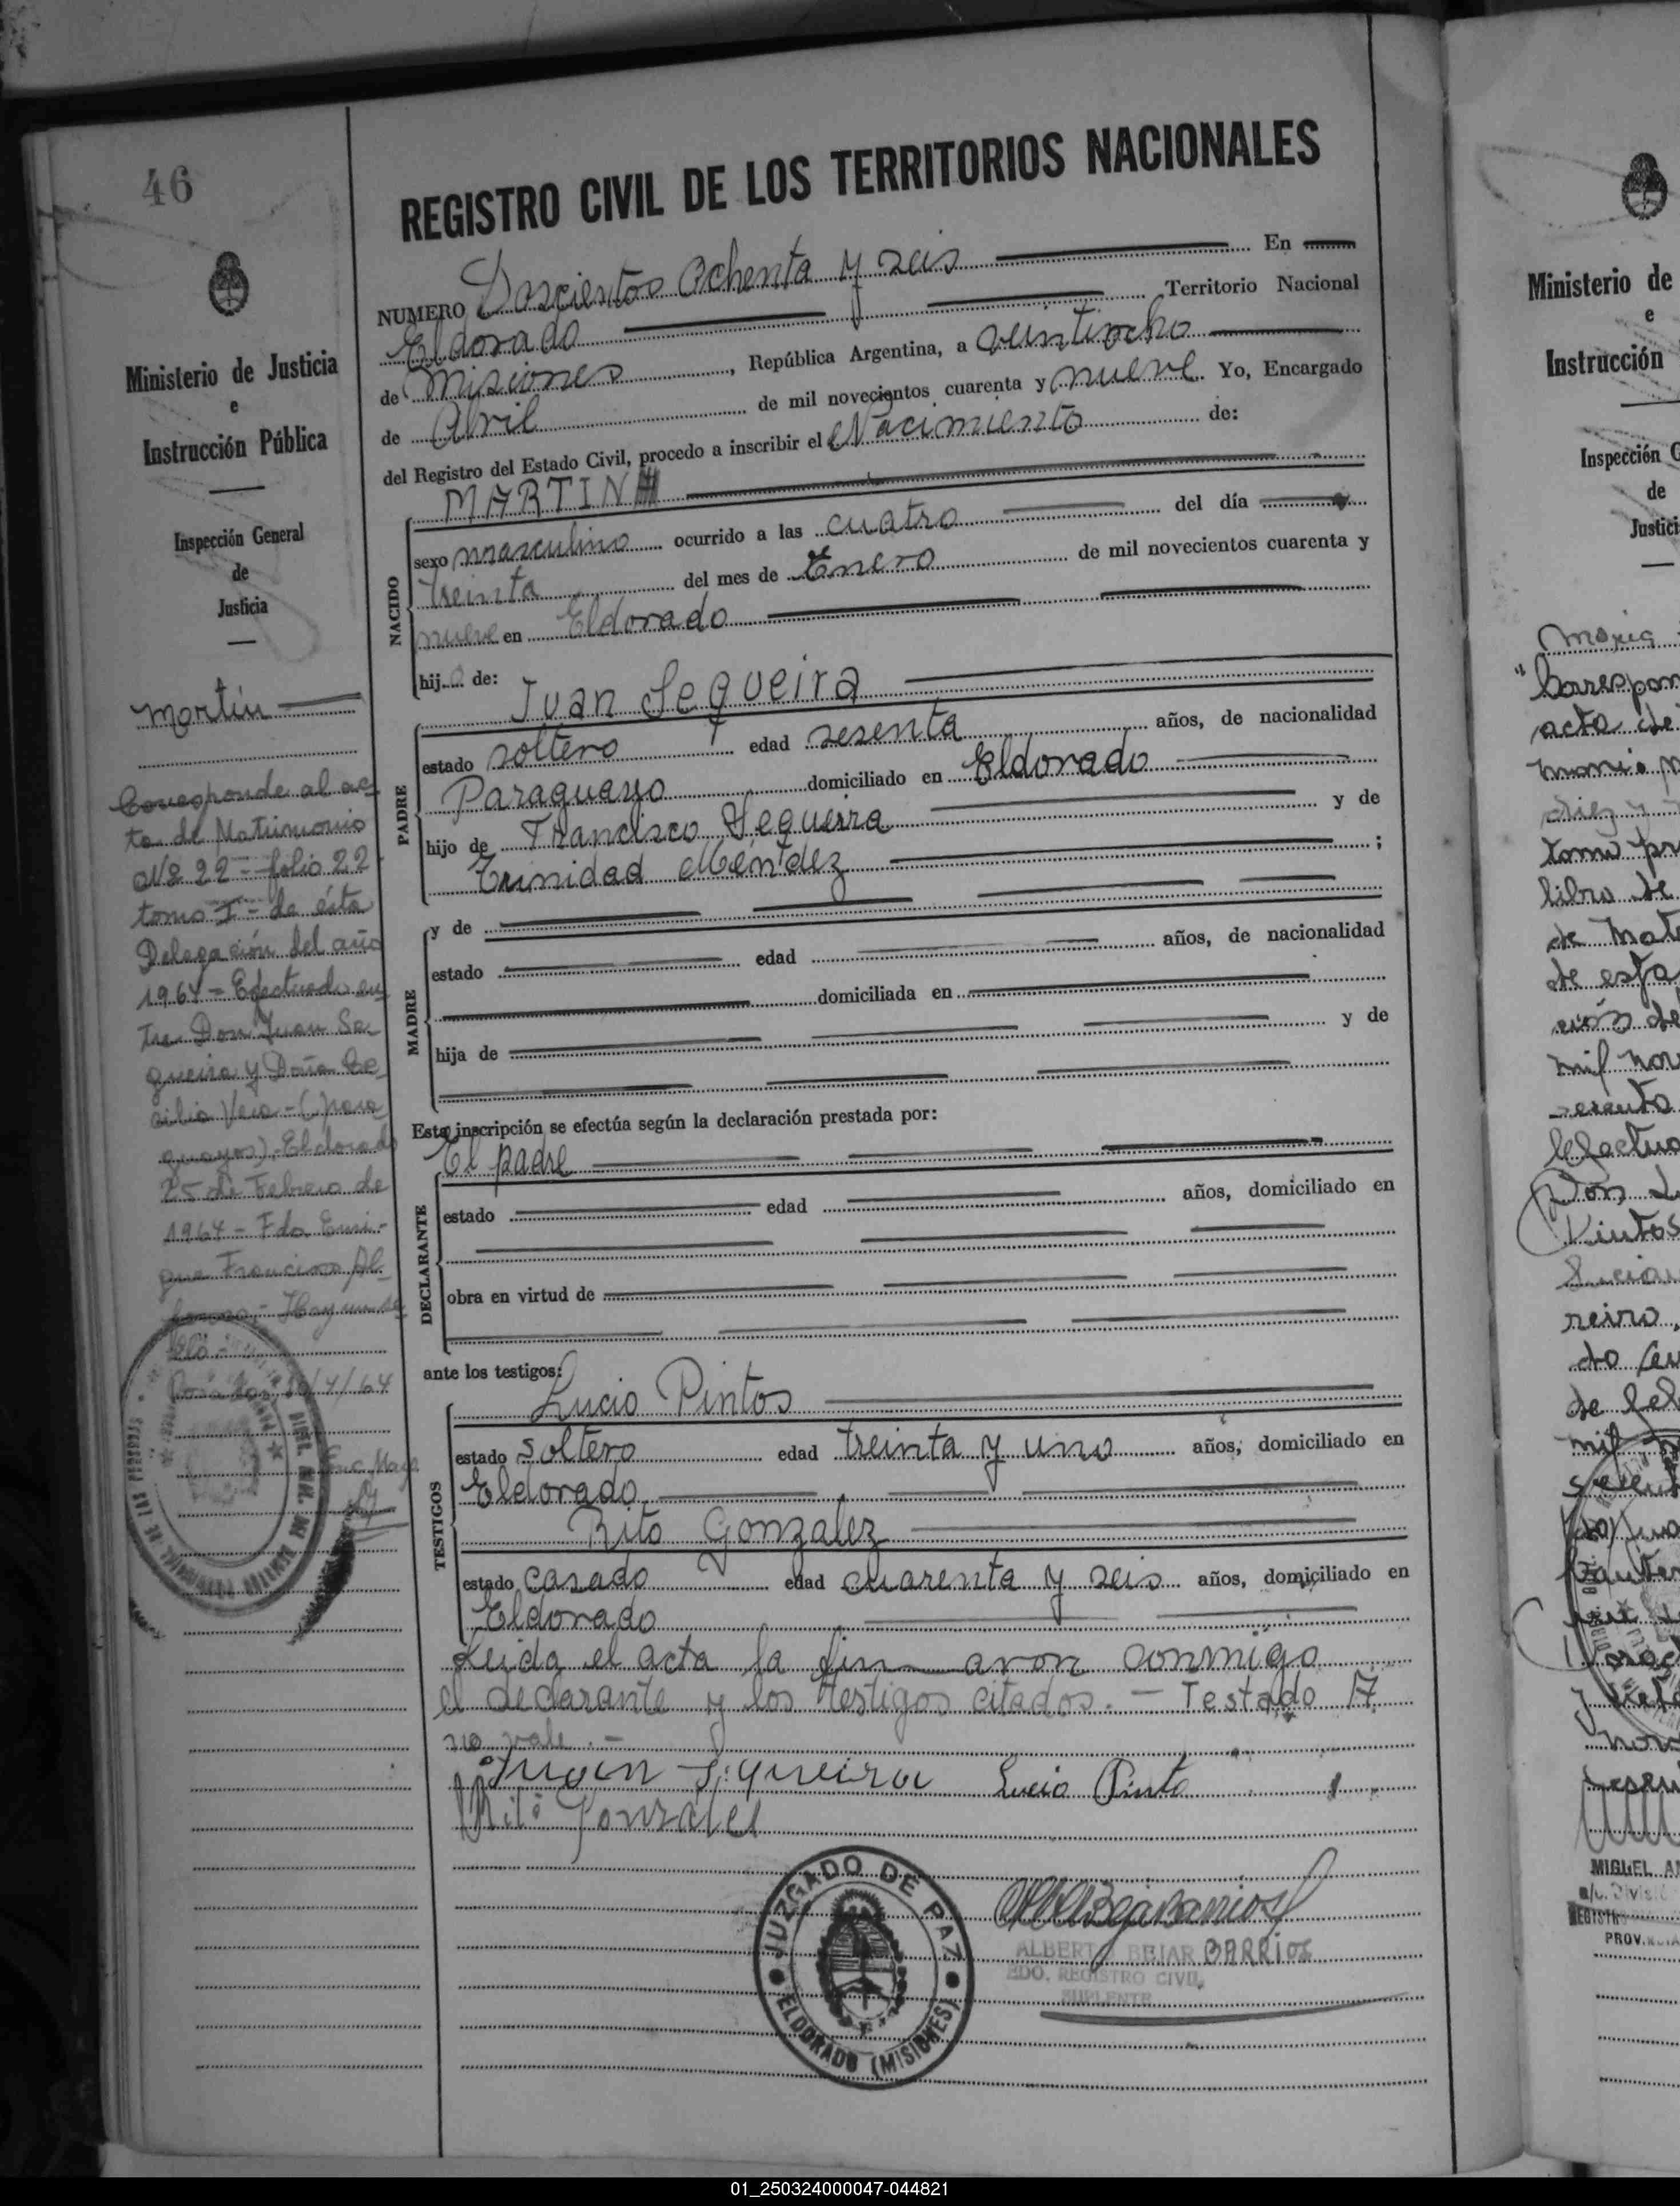 46
Ministerio de Justicia
e
Instrucción Pública
Inspección General
de
Justicia
Martín
Corresponde al ac-
ta de Matrimonio
Nº 22 - folio 22
tomo I - de ésta
Delegación del año
1964 - Efectuado en-
tre Don Juan Se-
queira y Doña Ce-
cilia Vera - (para-
guayos) - Eldorado
25 de Febrero de
1964 - Fdo Enri-
que Francisco
Hay un se-
llo -
Posadas /4/64
REGISTRO CIVIL DE LOS TERRITORIOS NACIONALES
NUMERO Doscientos Ochenta y seis En
Eldorado Territorio Nacional
de Misiones, República Argentina, a veintiocho
de Abril de mil novecientos cuarenta y nueve. Yo, Encargado
del Registro del Estado Civil, procedo a inscribir el Nacimiento de:
NACIDO
MARTIN
sexo masculino ocurrido a las cuatro del día
treinta del mes de Enero de mil novecientos cuarenta y
nueve en Eldorado
hijo de:
PADRE
Juan Sequeira
estado soltero edad sesenta años, de nacionalidad
Paraguayo domiciliado en Eldorado
hijo de Francisco Sequeira y de
Trinidad Méndez ;
MADRE
y de
estado edad años, de nacionalidad
domiciliada en
hija de y de
Esta inscripción se efectúa según la declaración prestada por:
DECLARANTE
El padre
estado edad años, domiciliado en
obra en virtud de
ante los testigos:
TESTIGOS
Lucio Pintos
estado soltero edad treinta y uno años, domiciliado en
Eldorado
Rito Gonzalez
estado casado edad cuarenta y seis años, domiciliado en
Eldorado
Leida el acta la firmaron conmigo
el declarante y los testigos citados. - Testado A
no vale. -
Juan Sequeira Lucio Pinto
Rito Gonzales
JUZGADO DE PAZ
ELDORADO (MISIONES)
ALBERTO BEJAR BARRIOS
EDO. REGISTRO CIVIL
SUPLENTE
Ministerio de
e
Instrucción
Inspección G
de
Justici
acta de
libro de
de Mat
mil nov
Don
MIGUEL A
a/c. Divisi
REGISTR
PROV.
01_250324000047-044821